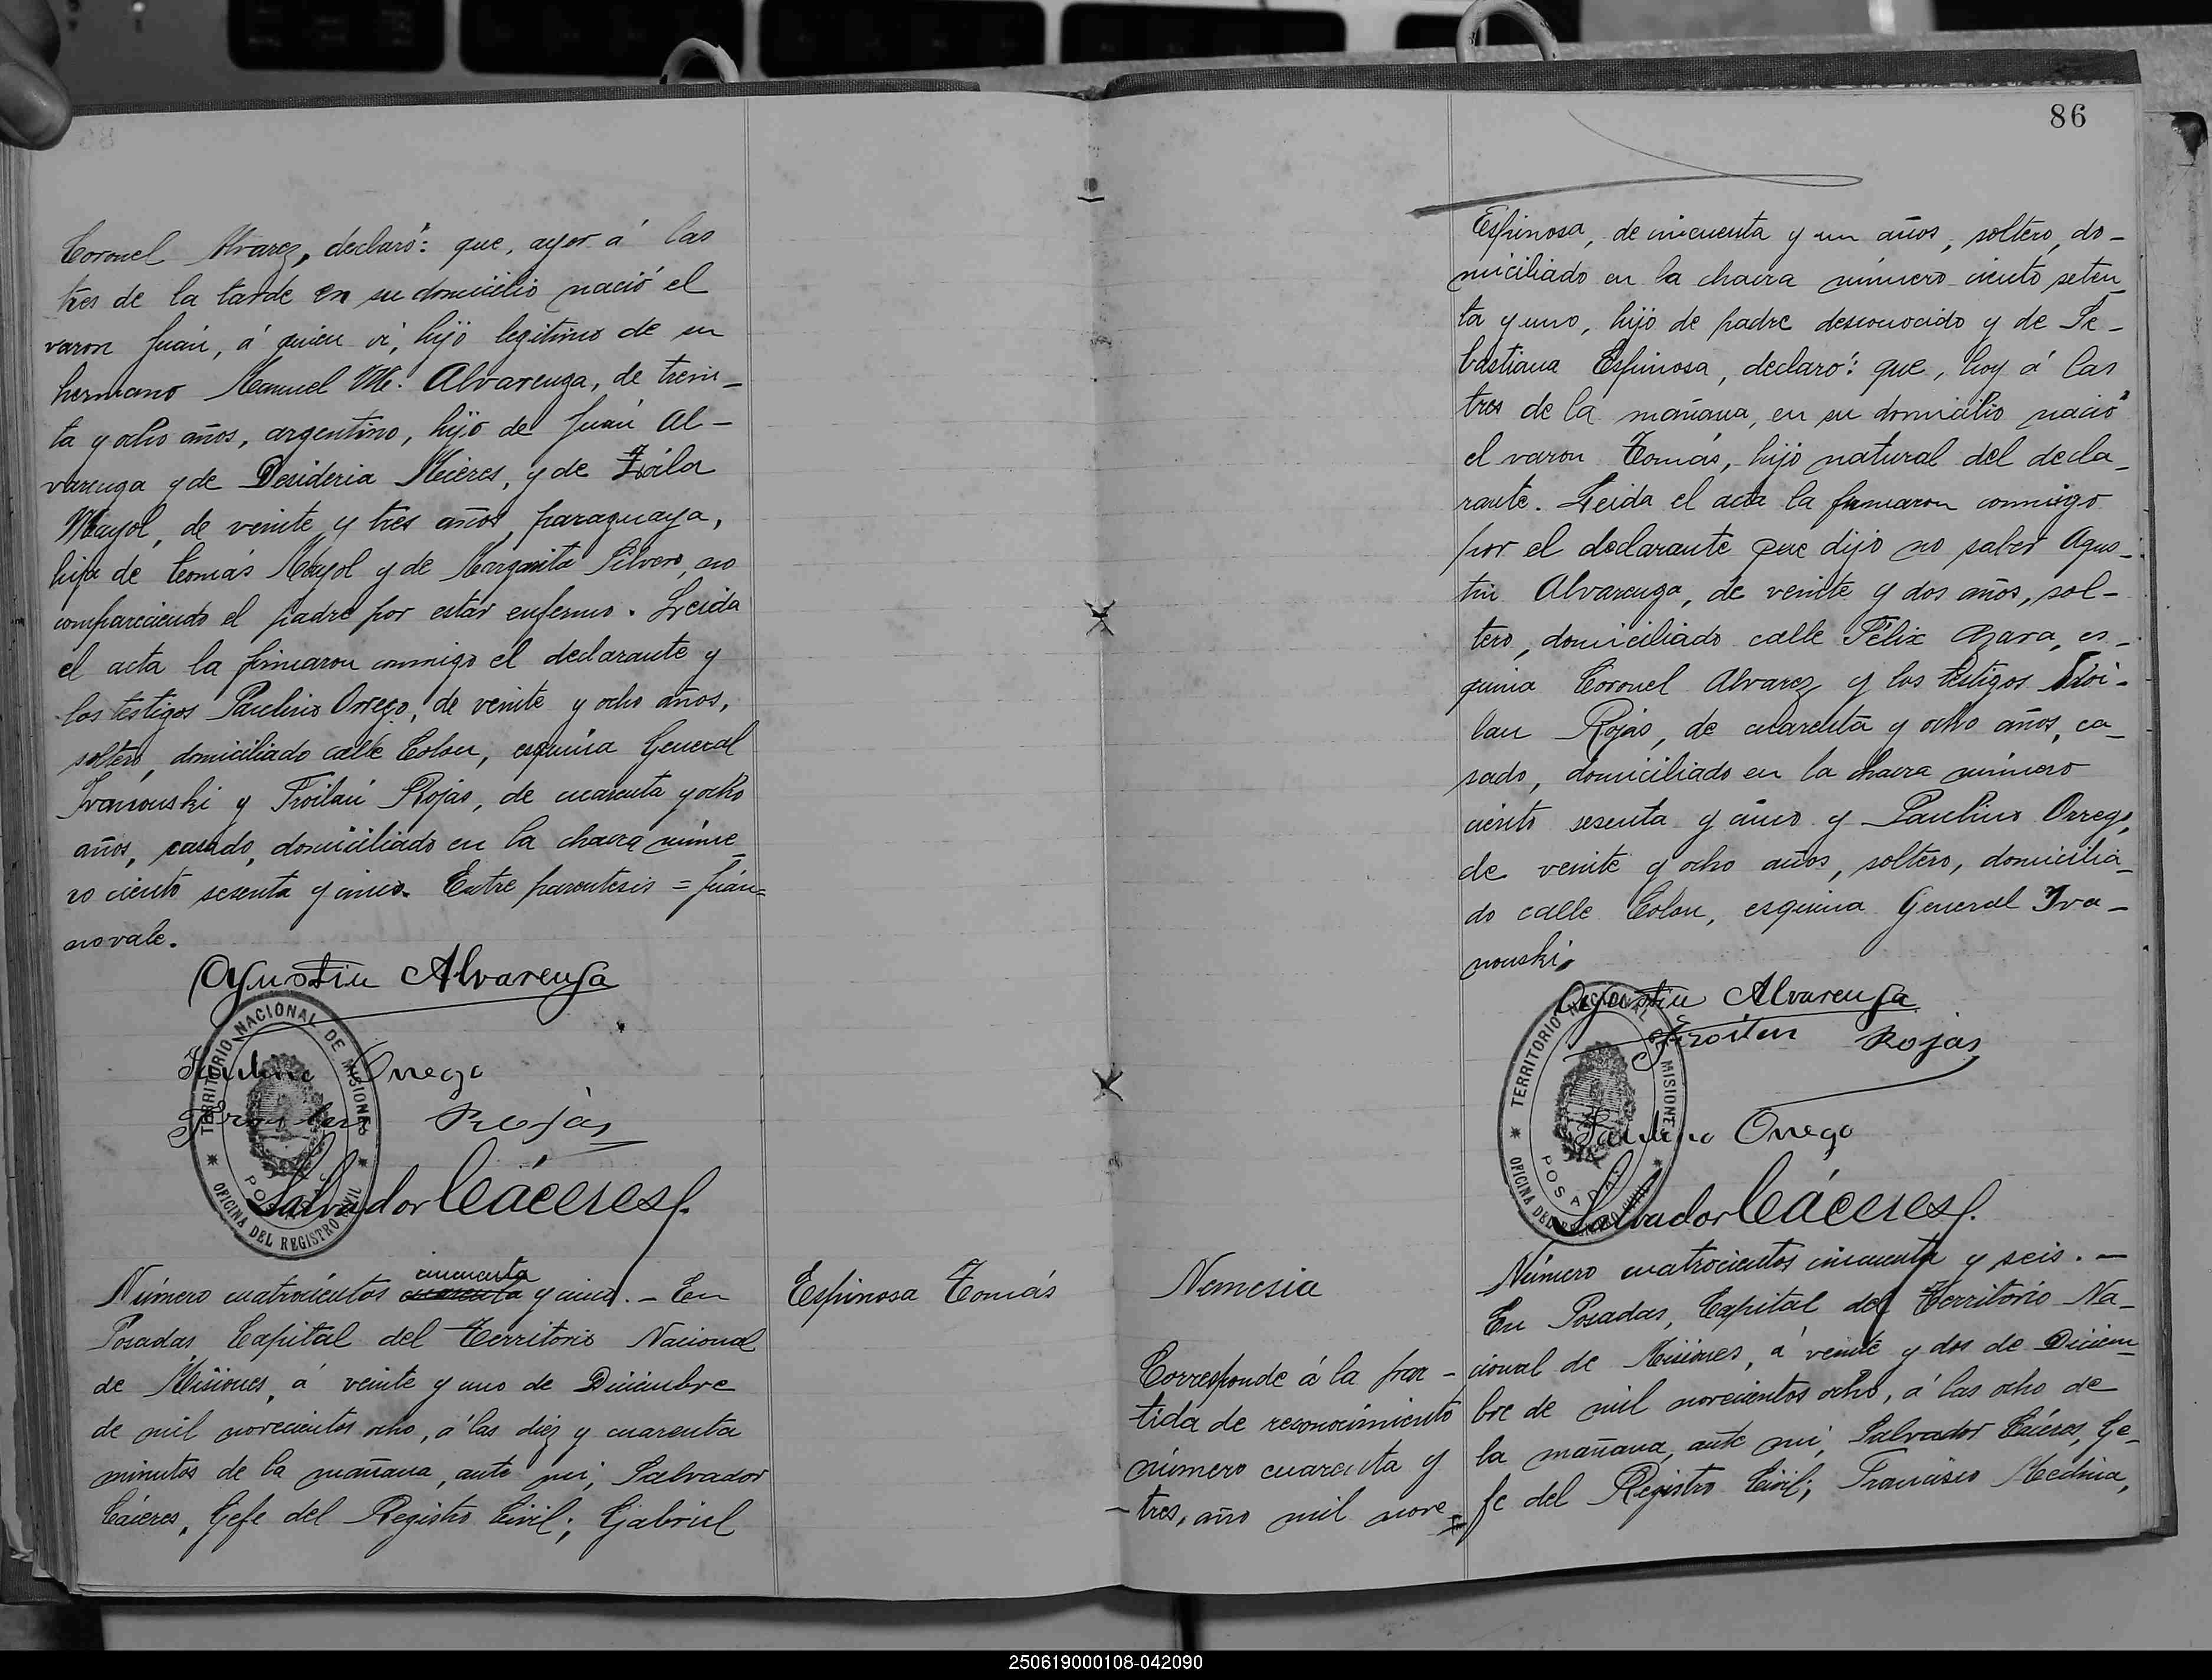 Coronel Alvarez, declaró: que, ayer á las
tres de la tarde en su domicilio nació el
varon Juán, á quien vi, hijo legitimo de su
hermano Manuel Ml. Alvarenga, de trein-
ta y ocho años, argentino, hijo de Juán Al-
varenga y de Desideria Mieres, y de Zoila
Mayol, de veinte y tres años, paraguaya,
hija de Tomás Mayol y de Margarita Silvero, no
compareciendo el padre por estar enfermo. Leida
el acta la firmaron conmigo el declarante y
los testigos Paulino Orrego, de veinte y ocho años,
soltero, domiciliado calle Colon, esquina General
Ivanouski y Froilán Rojas, de cuarenta y ocho
años, casado, domiciliado en la chacra núme
ro ciento sesenta y cinco. Entre parentesis = Juán=
no vale.
Agustin Alvarenga
Paulino Orrego
Froilan Rojas
Salvador Cáceres
TERRITORIO NACIONAL DE MISIONES
POSADAS
OFICINA DEL REGISTRO CIVIL
cincuenta
Número cuatrocientos cuarenta y cinco. - En
Posadas, Capital del Territorio Nacional
de Misiones, á veinte y uno de Diciembre
de mil novecientos ocho, á las diez y cuarenta
minutos de la mañana, ante mi, Salvador
Cáceres, Gefe del Registro Civil; Gabriel
Espinosa Tomás
86
Espinosa, de cincuenta y un años, soltero, do-
miciliado en la chacra número ciento seten
ta y uno, hijo de padre desconocido y de Se-
bastiana Espinosa, declaró: que, hoy á las
tres de la mañana, en su domicilio nació
el varon Tomás, hijo natural del decla-
rante. Leida el acta la firmaron conmigo
por el declarante que dijo no saber Agus-
tin Alvarenga, de veinte y dos años, sol-
tero, domiciliado calle Félix Azara, es-
quina Coronel Alvarez y los testigos Froi-
lan Rojas, de cuarenta y ocho años, ca-
sado, domiciliado en la chacra número
ciento sesenta y cinco y Paulino Orrego,
de veinte y ocho años, soltero, domicilia-
do calle Colon, esquina General Iva-
nouski.
Agustin Alvarenga
Froilan Rojas
Paulino Orrego
Salvador Cáceres
TERRITORIO NACIONAL DE MISIONES
POSADAS
OFICINA DEL REGISTRO CIVIL
Nemesia
Corresponde á la par-
tida de reconocimiento
número cuarenta y
tres, año mil nove
Número cuatrocientos cincuenta y seis. -
En Posadas, Capital del Territorio Na-
cional de Misiones, á veinte y dos de Diciem
bre de mil novecientos ocho, á las ocho de
la mañana, ante mi, Salvador Cáceres, Ge-
fe del Registro Civil; Francisco Medina,
250619000108-042090